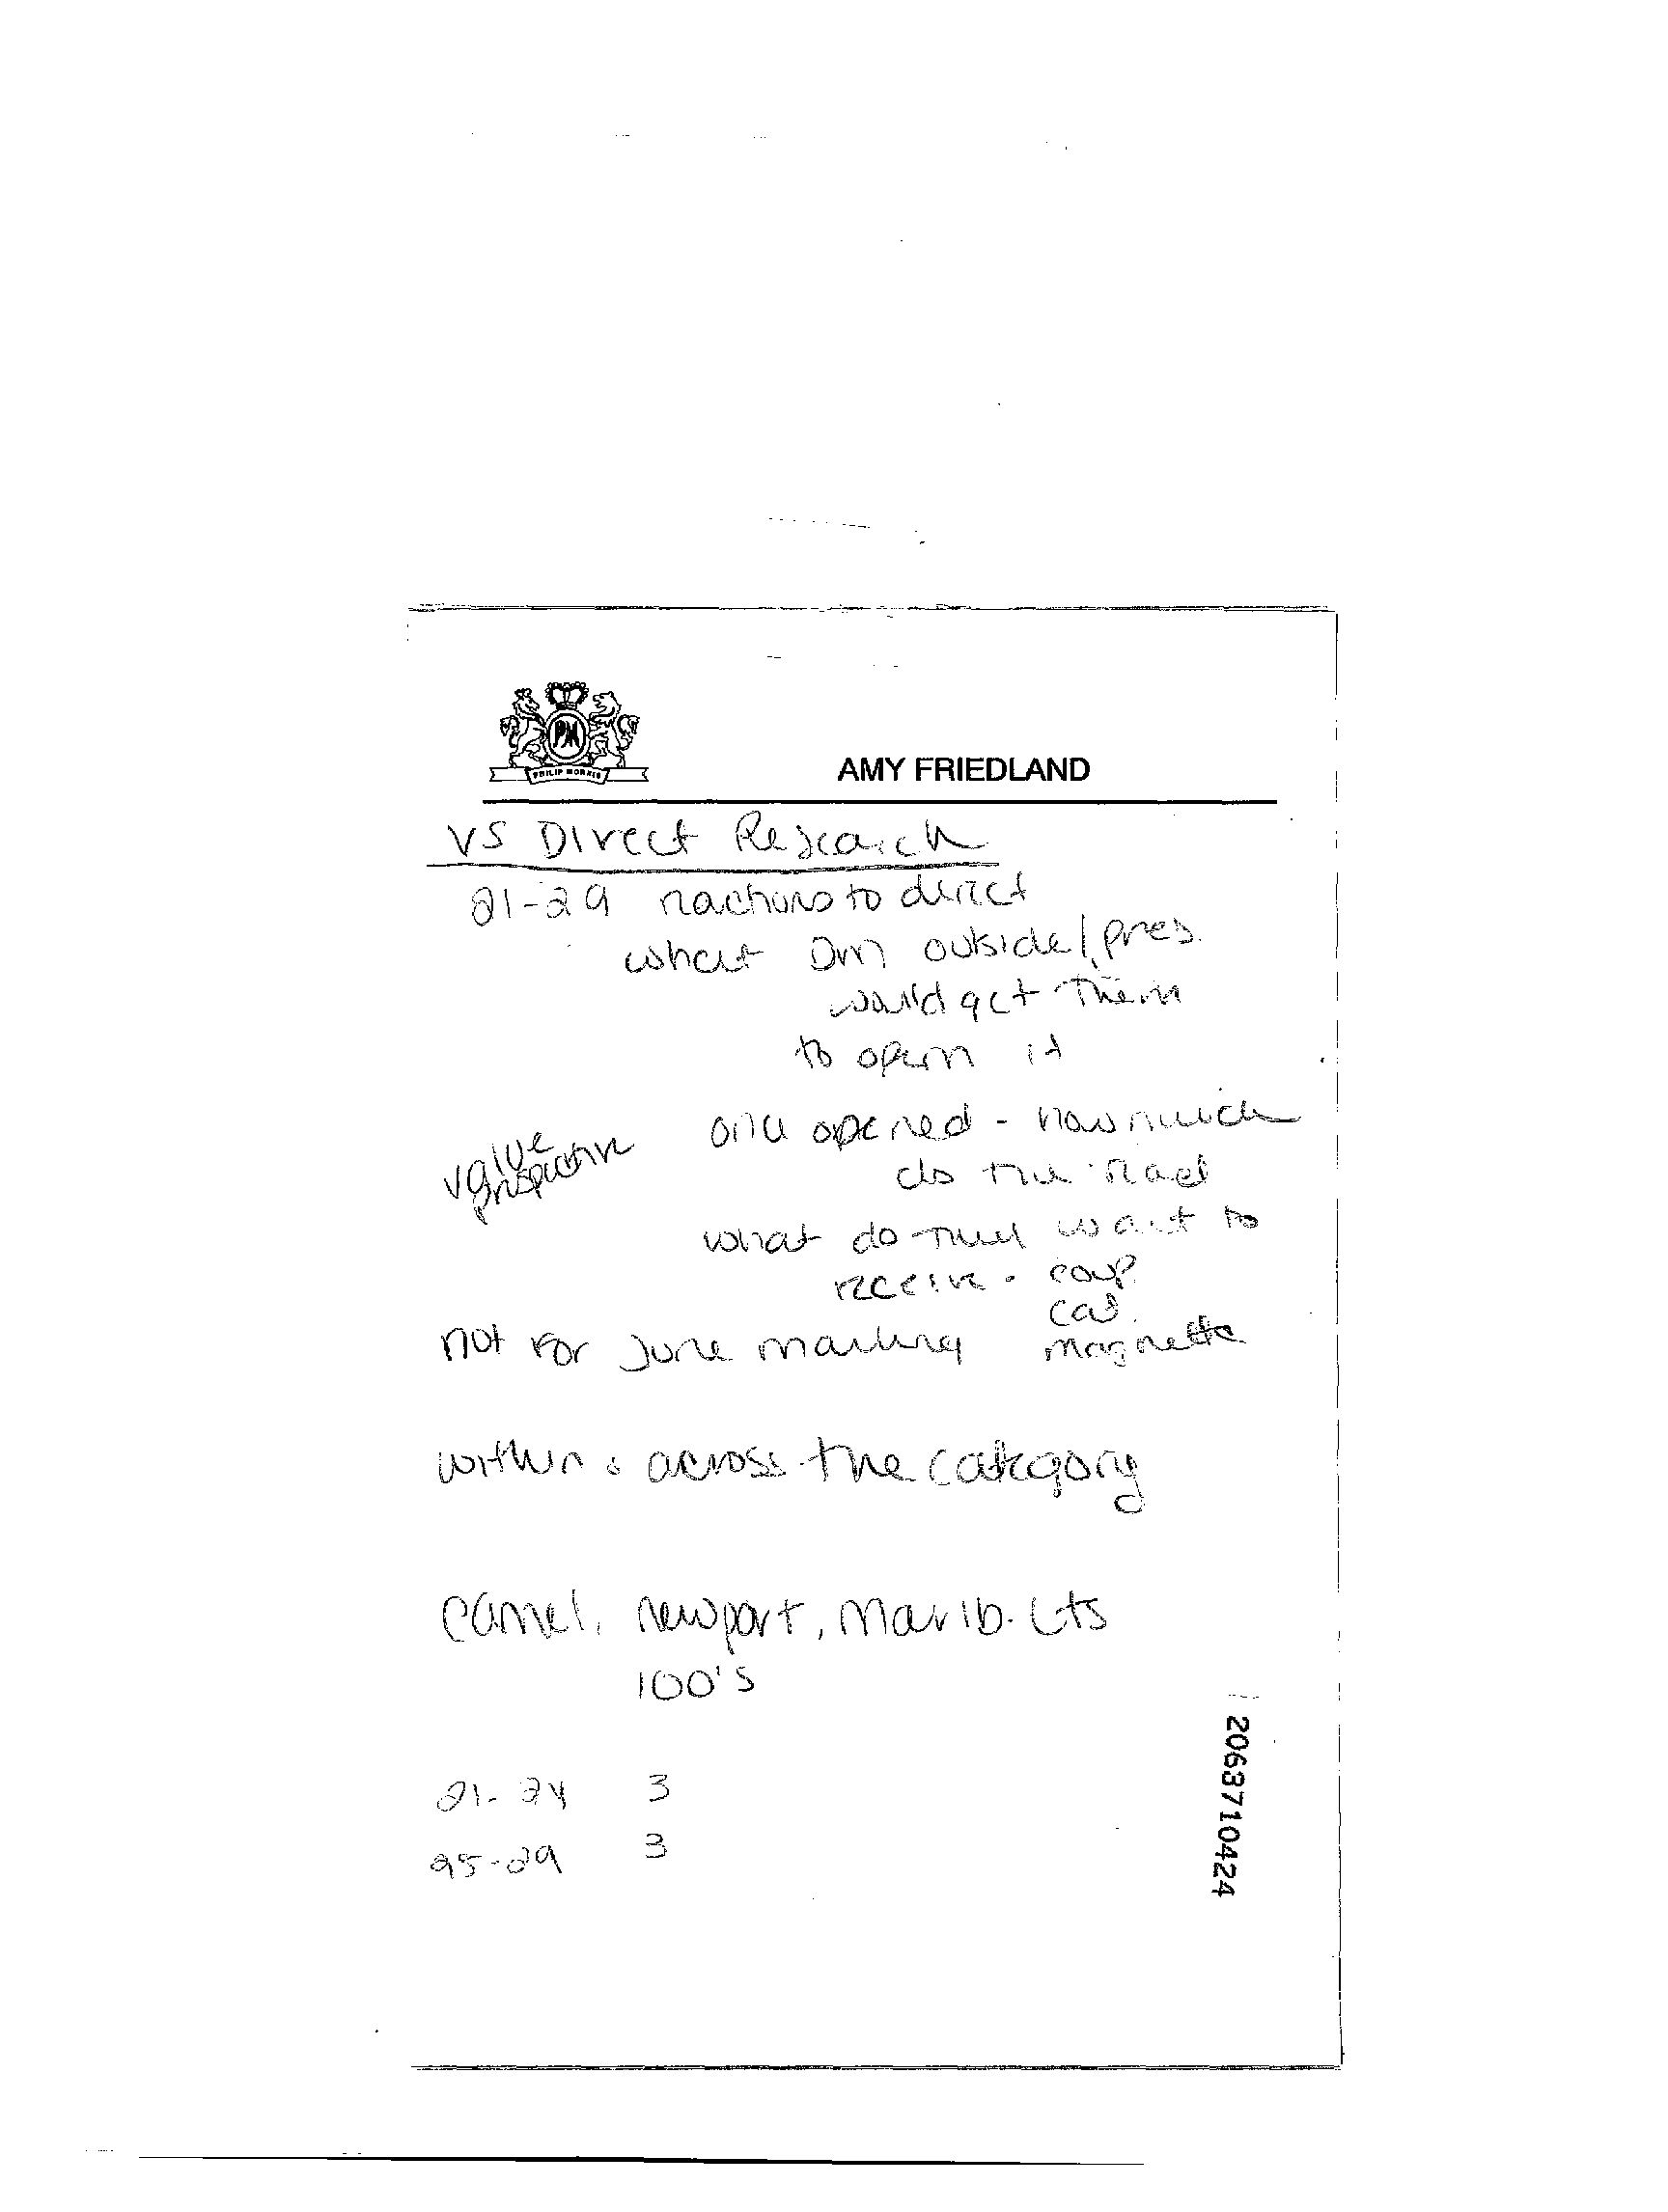 PM
PHILIP MORRIS
AMY FRIEDLAND
VS Direct Research
21-29 reactions to direct
what DM outside/pres.
would get them
to open it
once opened - how much
do they read
value
what do they want to
receive - coup.
cat.
not for June mailing magnette
within & across the category
Camel, Newport, Marlb. Lts
100's
21-24 3
25-29 3
2063710424